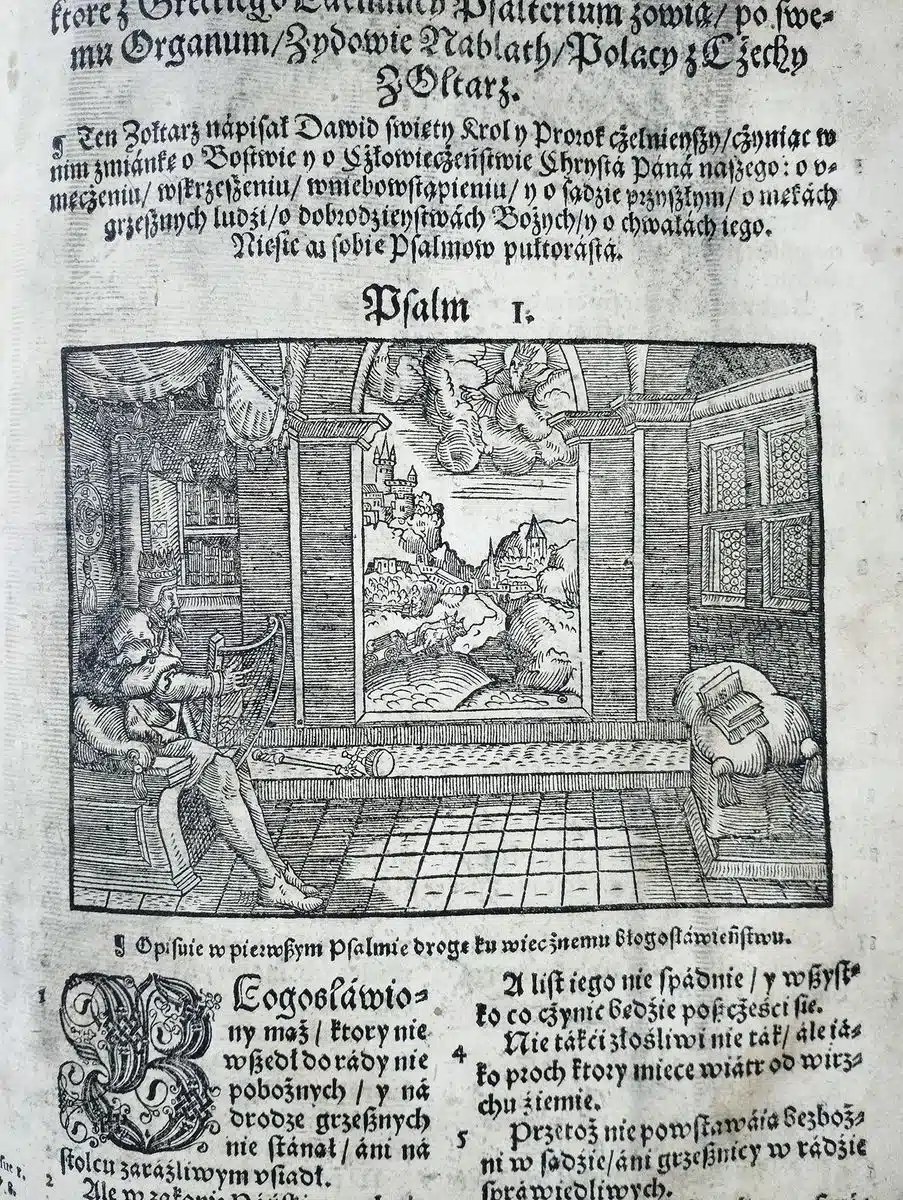 ktore z Greckiego Psalterium zowią/ po swe⸗
mu Organum/Zydowie Náblath/Polacy z Cżechy
ZOltarz.
¶ Ten Zołtarz nápisał Dawid święty Krol y Prorok cżelnieyszy/cżyniąc w
nim zmiánkę o Bostwie y o Cżłowiecżeństwie Chrystá Páná nászego: o v⸗
męcżeniu/ wskrzeszeniu/ wniebowstąpieniu/ y o sądzie przyszłym/ o mękách
grzesznych ludzi/o dobrodzieystwách Bożych/y o chwałách iego.
sobie Psalmow pułtorástá.
Psalm I.
¶ Opisuie w pierwszym Psalmie drogę ku wiecżnemu błogosłáwieństwu.
1 BLogosláwio⸗
ny mąż / ktory nie
wszedł do rády nie
pobożnych / y ná
drodze grzesznych
nie stánął / áni ná
stolcu záraźliwym vsiadł.
2 Ale w zakonie
A list iego nie spádnie / y wszyst⸗
ko co cżynić będzie poszcżęści się.
4 Nie tákci złośliwi nie ták/ ale iá⸗
ko proch ktory miece wiátr od wirz⸗
chu źiemie.
5 Przetoż nie powstáwáią bezboż⸗
ni w sądzie/áni grzesznicy w rádzie
spráwiedliwych.